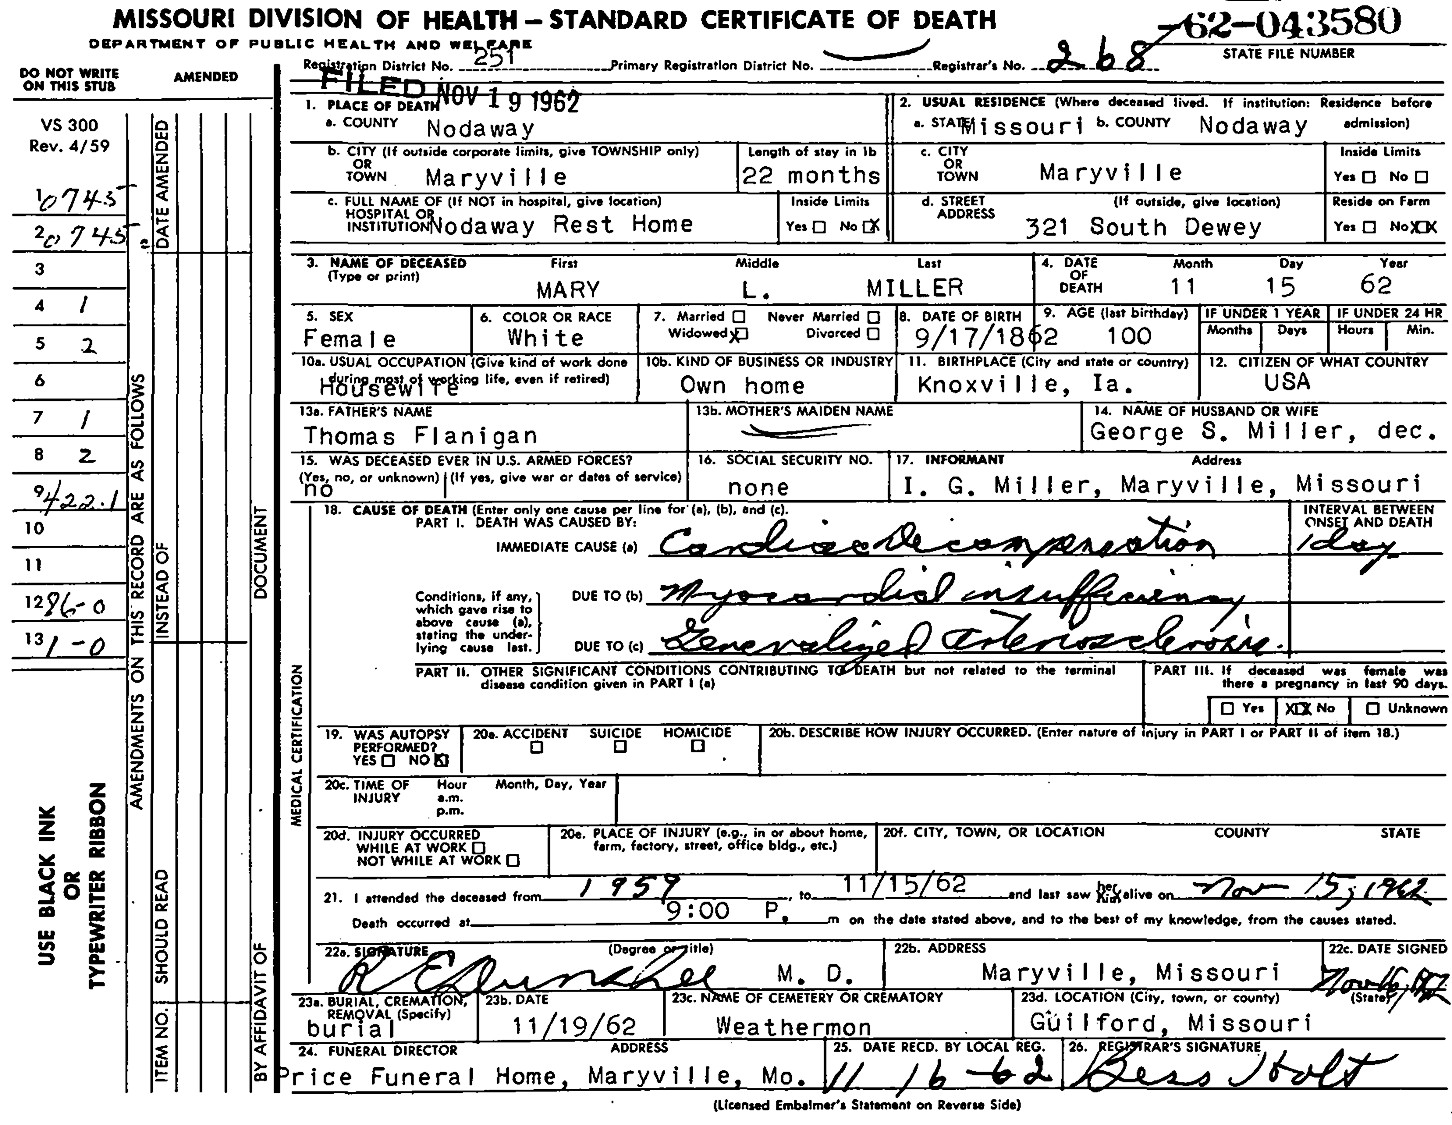 MISSOURI DIVISION OF HEALTH – STANDARD CERTIFICATE OF DEATH
62-043580
DEPARTMENT OF PUBLIC HEALTH AND WELFARE
STATE FILE NUMBER
Registration District No. 251 Primary Registration District No. Registrar's No. 268
DO NOT WRITE ON THIS STUB
AMENDED
FILED NOV 19 1962
VS 300
Rev. 4/59
1 0745
2 0745
3
4 1
5 2
6
7 1
8 2
9 422.1
10
11
12 86-0
13 1-0
USE BLACK INK
OR
TYPEWRITER RIBBON
AMENDMENTS ON THIS RECORD ARE AS FOLLOWS
DATE AMENDED
INSTEAD OF
SHOULD READ
ITEM NO.
DOCUMENT
BY AFFIDAVIT OF
MEDICAL CERTIFICATION
1. PLACE OF DEATH
a. COUNTY Nodaway
2. USUAL RESIDENCE (Where deceased lived. If institution: Residence before admission)
a. STATE Missouri b. COUNTY Nodaway
b. CITY (If outside corporate limits, give TOWNSHIP only)
OR
TOWN Maryville
Length of stay in 1b
22 months
c. CITY
OR
TOWN Maryville
Inside Limits
Yes ☐ No ☐
c. FULL NAME OF (If NOT in hospital, give location)
HOSPITAL OR
INSTITUTION Nodaway Rest Home
Inside Limits
Yes ☐ No ☒
d. STREET ADDRESS (If outside, give location)
321 South Dewey
Reside on Farm
Yes ☐ No XX
3. NAME OF DECEASED
(Type or print)
First Middle Last
MARY L. MILLER
4. DATE OF DEATH
Month Day Year
11 15 62
5. SEX
Female
6. COLOR OR RACE
White
7. Married ☐ Never Married ☐
Widowed ☒ Divorced ☐
8. DATE OF BIRTH
9/17/1862
9. AGE (last birthday)
100
IF UNDER 1 YEAR
Months Days
IF UNDER 24 HR
Hours Min.
10a. USUAL OCCUPATION (Give kind of work done during most of working life, even if retired)
Housewife
10b. KIND OF BUSINESS OR INDUSTRY
Own home
11. BIRTHPLACE (City and state or country)
Knoxville, Ia.
12. CITIZEN OF WHAT COUNTRY
USA
13a. FATHER'S NAME
Thomas Flanigan
13b. MOTHER'S MAIDEN NAME
14. NAME OF HUSBAND OR WIFE
George S. Miller, dec.
15. WAS DECEASED EVER IN U.S. ARMED FORCES?
(Yes, no, or unknown) (If yes, give war or dates of service)
no
16. SOCIAL SECURITY NO.
none
17. INFORMANT Address
I. G. Miller, Maryville, Missouri
18. CAUSE OF DEATH (Enter only one cause per line for (a), (b), and (c).
PART I. DEATH WAS CAUSED BY:
INTERVAL BETWEEN ONSET AND DEATH
IMMEDIATE CAUSE (a) Cardiac Decompensation 1 day
Conditions, if any, which gave rise to above cause (a), stating the underlying cause last.
DUE TO (b) Myocardial insufficiency
DUE TO (c) Generalized Arteriosclerosis.
PART II. OTHER SIGNIFICANT CONDITIONS CONTRIBUTING TO DEATH but not related to the terminal disease condition given in PART I (a)
PART III. If deceased was female was there a pregnancy in last 90 days.
☐ Yes XX No ☐ Unknown
19. WAS AUTOPSY PERFORMED?
YES ☐ NO ☒
20a. ACCIDENT SUICIDE HOMICIDE
☐ ☐ ☐
20b. DESCRIBE HOW INJURY OCCURRED. (Enter nature of injury in PART I or PART II of item 18.)
20c. TIME OF INJURY Hour Month, Day, Year
a.m.
p.m.
20d. INJURY OCCURRED
WHILE AT WORK ☐
NOT WHILE AT WORK ☐
20e. PLACE OF INJURY (e.g., in or about home, farm, factory, street, office bldg., etc.)
20f. CITY, TOWN, OR LOCATION COUNTY STATE
21. I attended the deceased from 1959, to 11/15/62 and last saw her/him alive on Nov 15, 1962
Death occurred at 9:00 P. m on the date stated above, and to the best of my knowledge, from the causes stated.
22a. SIGNATURE (Degree or title)
R E Dunshee M. D.
22b. ADDRESS
Maryville, Missouri
22c. DATE SIGNED
Nov 16, 1962
23a. BURIAL, CREMATION, REMOVAL (Specify)
burial
23b. DATE
11/19/62
23c. NAME OF CEMETERY OR CREMATORY
Weathermon
23d. LOCATION (City, town, or county) (State)
Guilford, Missouri
24. FUNERAL DIRECTOR ADDRESS
Price Funeral Home, Maryville, Mo.
25. DATE RECD. BY LOCAL REG.
11 16-62
26. REGISTRAR'S SIGNATURE
Bess Holt
(Licensed Embalmer's Statement on Reverse Side)